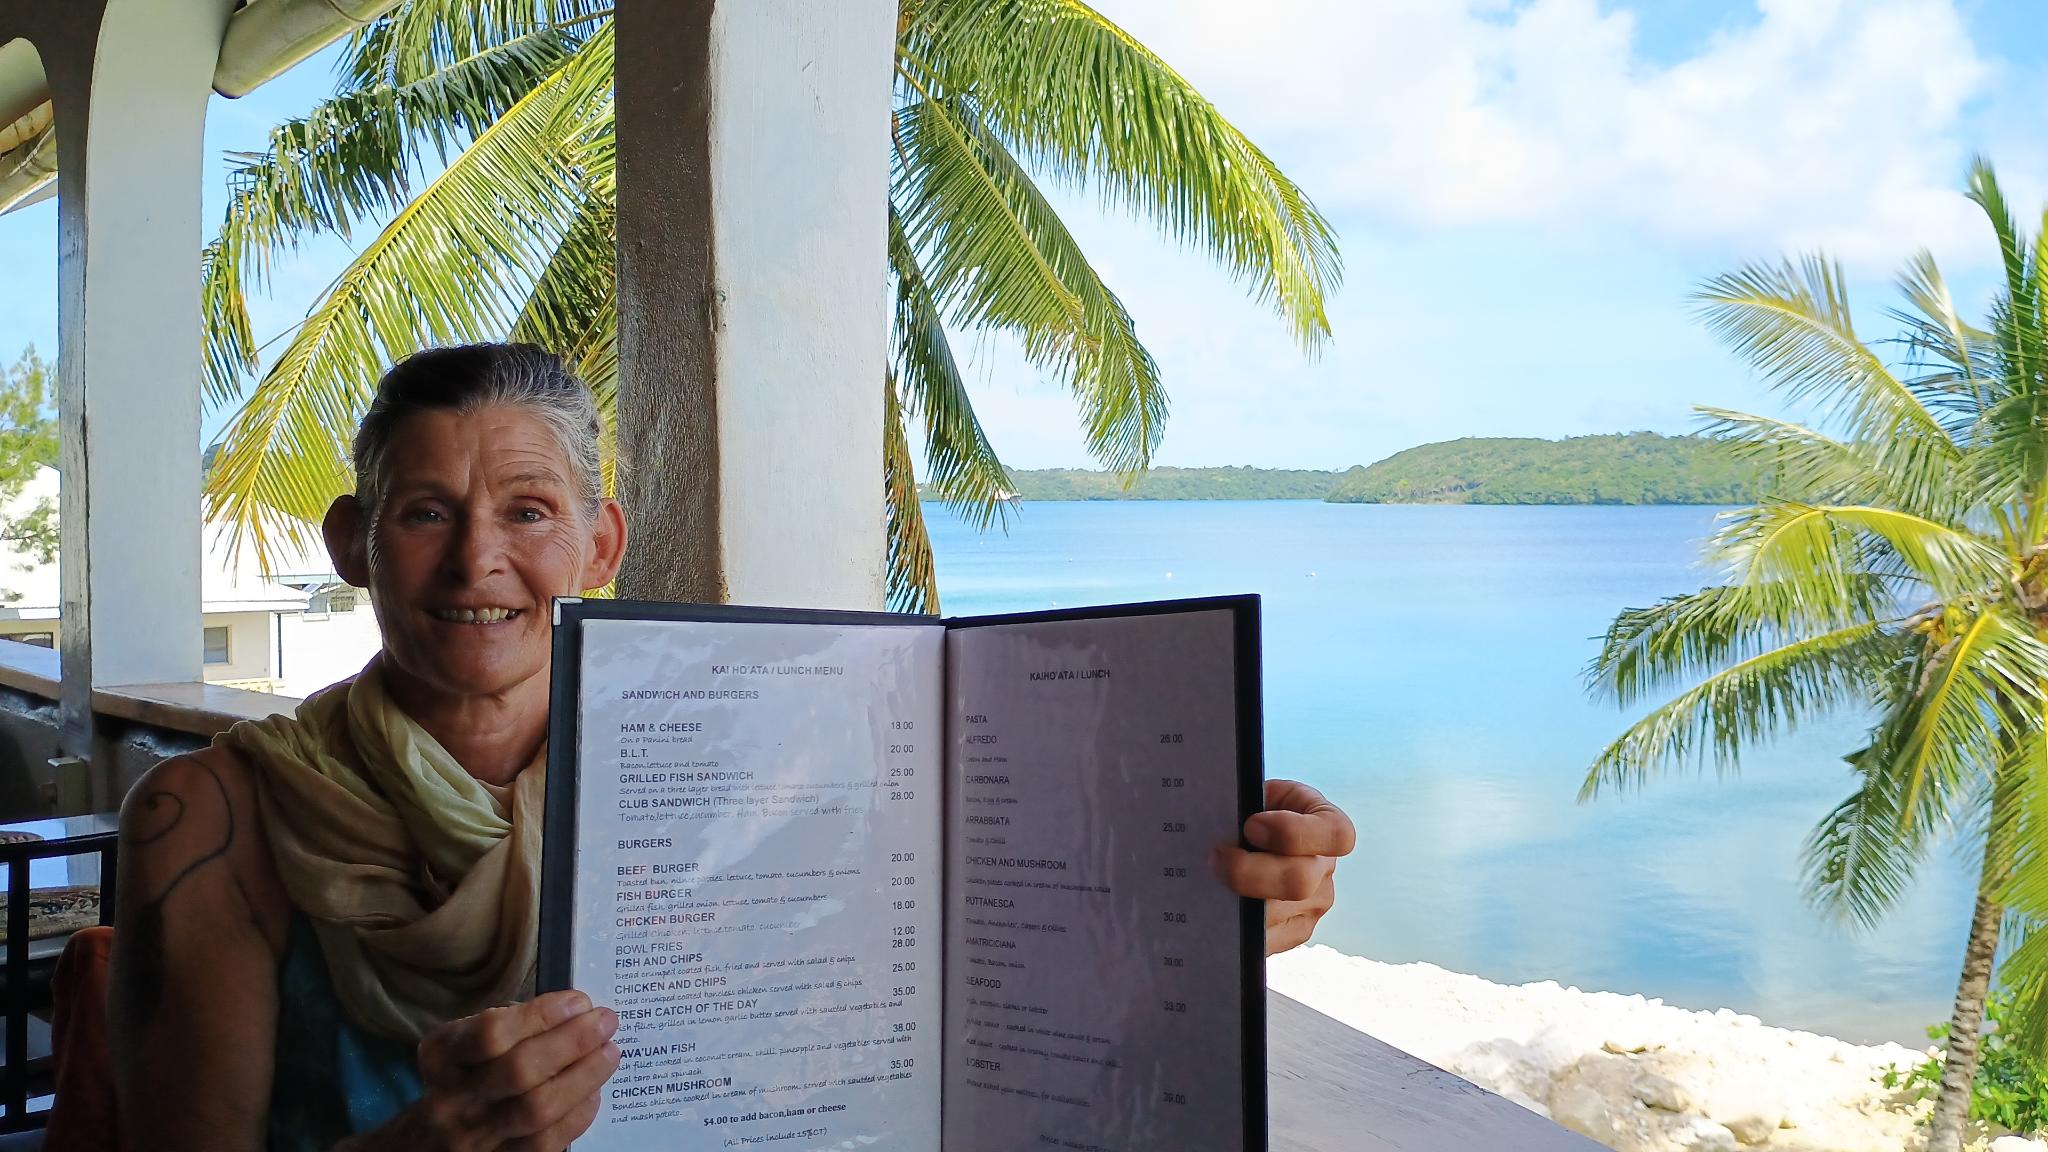 KAI HO'ATA / LUNCH MENU
SANDWICH AND BURGERS
HAM & CHEESE 18.00
On a Panini bread
B.L.T. 20.00
Bacon, lettuce and tomato
GRILLED FISH SANDWICH 25.00
Served on a three layer bread with lettuce, tomato cucumbers & grilled onion
CLUB SANDWICH (Three layer Sandwich) 28.00
Tomato, lettuce, cucumber, Ham, Bacon served with fries
BURGERS
BEEF BURGER 20.00
Toasted bun, mince patties, lettuce, tomato, cucumbers & onions
FISH BURGER 20.00
Grilled fish, grilled onion, lettuce, tomato & cucumbers
CHICKEN BURGER 18.00
Grilled Chicken, lettuce, tomato, cucumber
BOWL FRIES 12.00
FISH AND CHIPS 28.00
Bread crumped coated fish, fried and served with salad & chips
CHICKEN AND CHIPS 25.00
Bread crumped coated boneless chicken served with salad & chips
FRESH CATCH OF THE DAY 35.00
ish fillet, grilled in lemon garlic butter served with sautéed vegetables and
potato.
AVA'UAN FISH 38.00
ish fillet cooked in coconut cream, chilli, pineapple and vegetables served with
local taro and spinach.
CHICKEN MUSHROOM 35.00
Boneless chicken cooked in cream of mushroom, served with sautéed vegetables
and mash potato.
$4.00 to add bacon,ham or cheese
(All Prices Include 15%CT)
KAIHO'ATA / LUNCH
PASTA
ALFREDO 26.00
and Ham
CARBONARA 30.00
Bacon, Egg & cream
ARRABBIATA 25.00
Tomato & Chilli
CHICKEN AND MUSHROOM 30.00
Chicken pieces cooked in cream of mushroom sauce
PUTTANESCA 30.00
Tomato, Anchovies, Capers & Olives
AMATRICIANA 30.00
Tomato, Bacon, onion
SEAFOOD 33.00
Fish, clams or lobster
White sauce - cooked in white wine sauce & cream
Red sauce - cooked in creamy tomato sauce and
LOBSTER 39.00
Please asked your waitress for